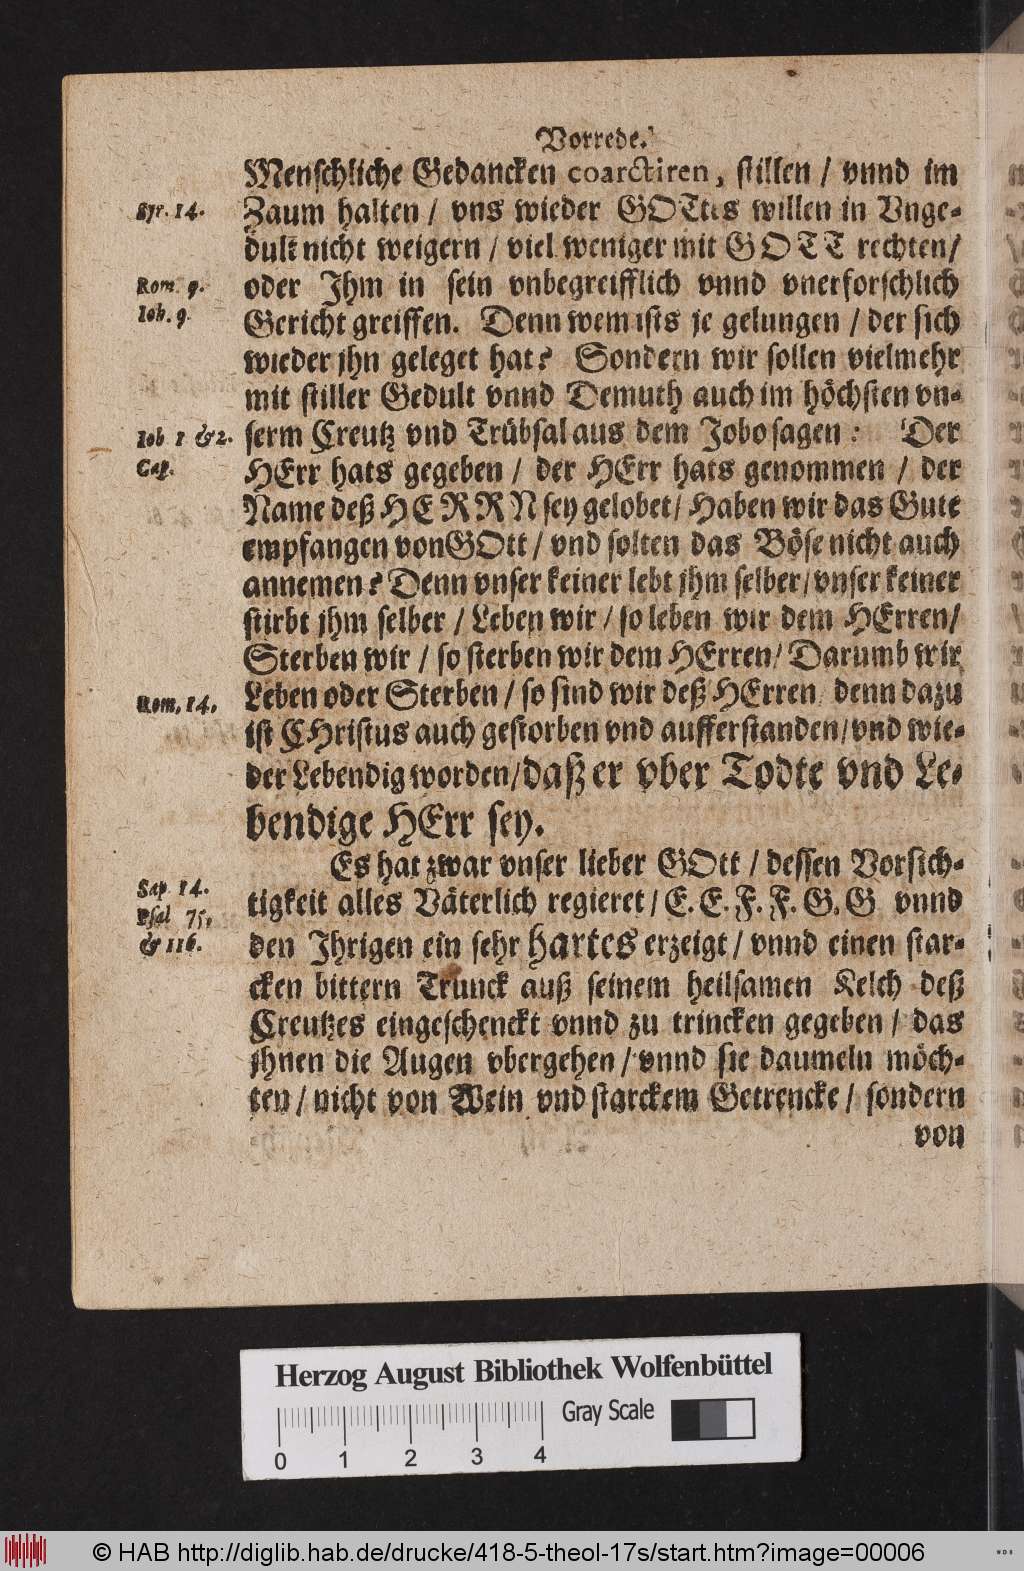 Vorrede.
Menschliche Gedancken coarctiren, stillen / vnnd im
Syr. 14. Zaum halten / vns wieder GOTtes willen in Vnge-
dult nicht weigern / viel weniger mit GOTT rechten /
Rom. 9. oder Ihm in sein vnbegreifflich vnnd vnerforschlich
Iob. 9. Gericht greiffen. Denn wem ists je gelungen / der sich
wieder jhn geleget hat? Sondern wir sollen vielmehr
mit stiller Gedult vnnd Demuth auch im höchsten vn-
Iob 1 & 2. serm Creutz vnd Trübsal aus dem Jobo sagen: Der
Cap. HErr hats gegeben / der HErr hats genommen / der
Name deß HERRN sey gelobet / Haben wir das Gute
empfangen von GOtt / vnd solten das Böse nicht auch
annemen? Denn vnser keiner lebt jhm selber / vnser keiner
stirbt jhm selber / Leben wir / so leben wir dem HErren /
Sterben wir / so sterben wir dem HErren / Darumb wir
Rom. 14. Leben oder Sterben / so sind wir deß HErren / denn dazu
ist CHristus auch gestorben vnd aufferstanden / vnd wie-
der Lebendig worden / daß er vber Todte vnd Le-
bendige HErr sey.
Es hat zwar vnser lieber GOtt / dessen Vorsich-
Sap. 14. tigkeit alles Väterlich regieret / E. E. F. F. G. G vnnd
Psal 75. den Jhrigen ein sehr hartes erzeigt / vnnd einen star-
& 116. cken bittern Trunck auß seinem heilsamen Kelch deß
Creutzes eingeschenckt vnnd zu trincken gegeben / das
jhnen die Augen vbergehen / vnnd sie daumeln möch-
ten / nicht von Wein vnd starckem Getrencke / sondern
von
Herzog August Bibliothek Wolfenbüttel
Gray Scale
0 1 2 3 4
© HAB http://diglib.hab.de/drucke/418-5-theol-17s/start.htm?image=00006